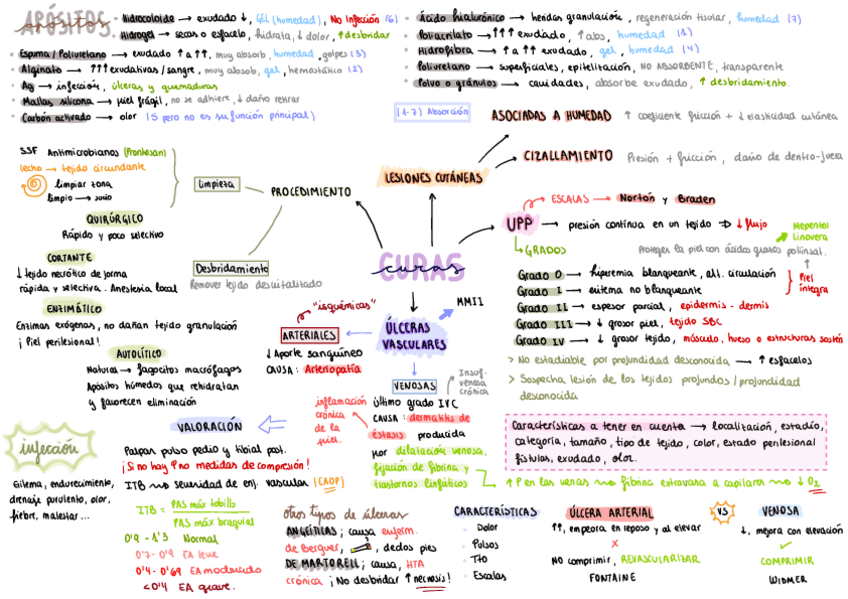 APÓSITOS
apósitos
Hidrocoloide → exudado ↓, GEL (humedad), No infección (6)
Hidrogel → secas o esfacelo, hidrata, ↓ dolor, ↑ desbridar
Espuma / Poliuretano → exudado ↑ a ↑↑, muy absorb, humedad, golpes (3)
Alginato → ↑↑↑ exudativas / sangre, muy absorb, gel, hemostático (2)
Ag → infección, úlceras y quemaduras
Mallas silicona → piel frágil, no se adhiere, ↓ daño retirar
Carbón activado → olor (5 pero no es su función principal)
Ácido hialurónico → heridas granulación, regeneración tisular, humedad (7)
Poliacrilato → ↑↑↑ exudado, ↑ abs, humedad (1)
Hidrofibra → ↑ a ↑↑ exudado, gel, humedad (4)
Poliuretano → superficiales, epitelización, NO ABSORBENTE, transparente
Polvo o gránulos → cavidades, absorbe exudado, ↑ desbridamiento.
(1-7) Absorción
CURAS
curas
LESIONES CUTÁNEAS
ASOCIADAS A HUMEDAD ↑ coeficiente fricción + ↓ elasticidad cutánea
CIZALLAMIENTO Presión + fricción, daño de dentro-fuera
UPP → presión continua en un tejido ⇒ ↓ flujo
ESCALAS → Norton y Braden
GRADOS
Mepentol
Linovera
Proteger la piel con ácidos grasos poliinsat.
Grado 0 → hiperemia blanqueante, alt. circulación
Grado I → eritema no blanqueante
Piel íntegra
Grado II → espesor parcial, epidermis - dermis
Grado III → ↓ grosor piel, tejido SBC
Grado IV → ↓ grosor tejido, músculo, hueso o estructuras sostén
> No estadiable por profundidad desconocida → ↑ esfacelos
> Sospecha lesión de los tejidos profundos / profundidad
desconocida
Características a tener en cuenta → localización, estadío,
categoría, tamaño, tipo de tejido, color, estado perilesional
fístulas, exudado, olor.
PROCEDIMIENTO
Limpieza
SSF Antimicrobianos (Prontosan)
Lecho → tejido circundante
limpiar zona
limpio → sucio
Desbridamiento
Remover tejido desvitalizado
QUIRÚRGICO
Rápido y poco selectivo
CORTANTE
↓ tejido necrótico de forma
rápida y selectiva. Anestesia local
ENZIMÁTICO
Enzimas exógenas, no dañan tejido granulación
¡ Piel perilesional !
AUTOLÍTICO
Natural → fagocitos macrófagos
Apósitos húmedos que rehidratan
y favorecen eliminación
ÚLCERAS
VASCULARES
MMII
"isquémicas"
ARTERIALES
↓ Aporte sanguíneo
CAUSA: Arteriopatía
VENOSAS
Insuf.
venosa
crónica
último grado IVC
CAUSA: dermatitis de
éstasis producida
por dilatación venosa,
fijación de fibrina y
trastornos linfáticos
inflamación
crónica
de la
piel.
↑ P en las venas → fibrina extravasa a capilares → ↓ O₂
VALORACIÓN
Palpar pulso pedio y tibial post.
¡Si no hay P no medidas de compresión!
ITB → severidad de enf. vascular (EAOP)
ITB = PAS máx tobillo
PAS máx braquial
0'9 - 1'3 Normal
0'7 - 0'9 EA leve
0'4 - 0'69 EA moderado
<0'4 EA grave.
infección
Eritema, endurecimiento,
drenaje purulento, olor,
fiebre, malestar...
otros tipos de úlceras
ANGEÍTICAS; causa enferm.
de Berguer, dedos pies
DE MARTORELL; causa, HTA
crónica ¡No desbridar ↑ necrosis!
CARACTERÍSTICAS
· Dolor
· Pulsos
· Tto
· Escalas
ÚLCERA ARTERIAL
↑↑, empeora en reposo y al elevar
X
NO comprimir, REVASCULARIZAR
FONTAINE
VS
VENOSA
↓, mejora con elevación
✓
COMPRIMIR
WIDMER